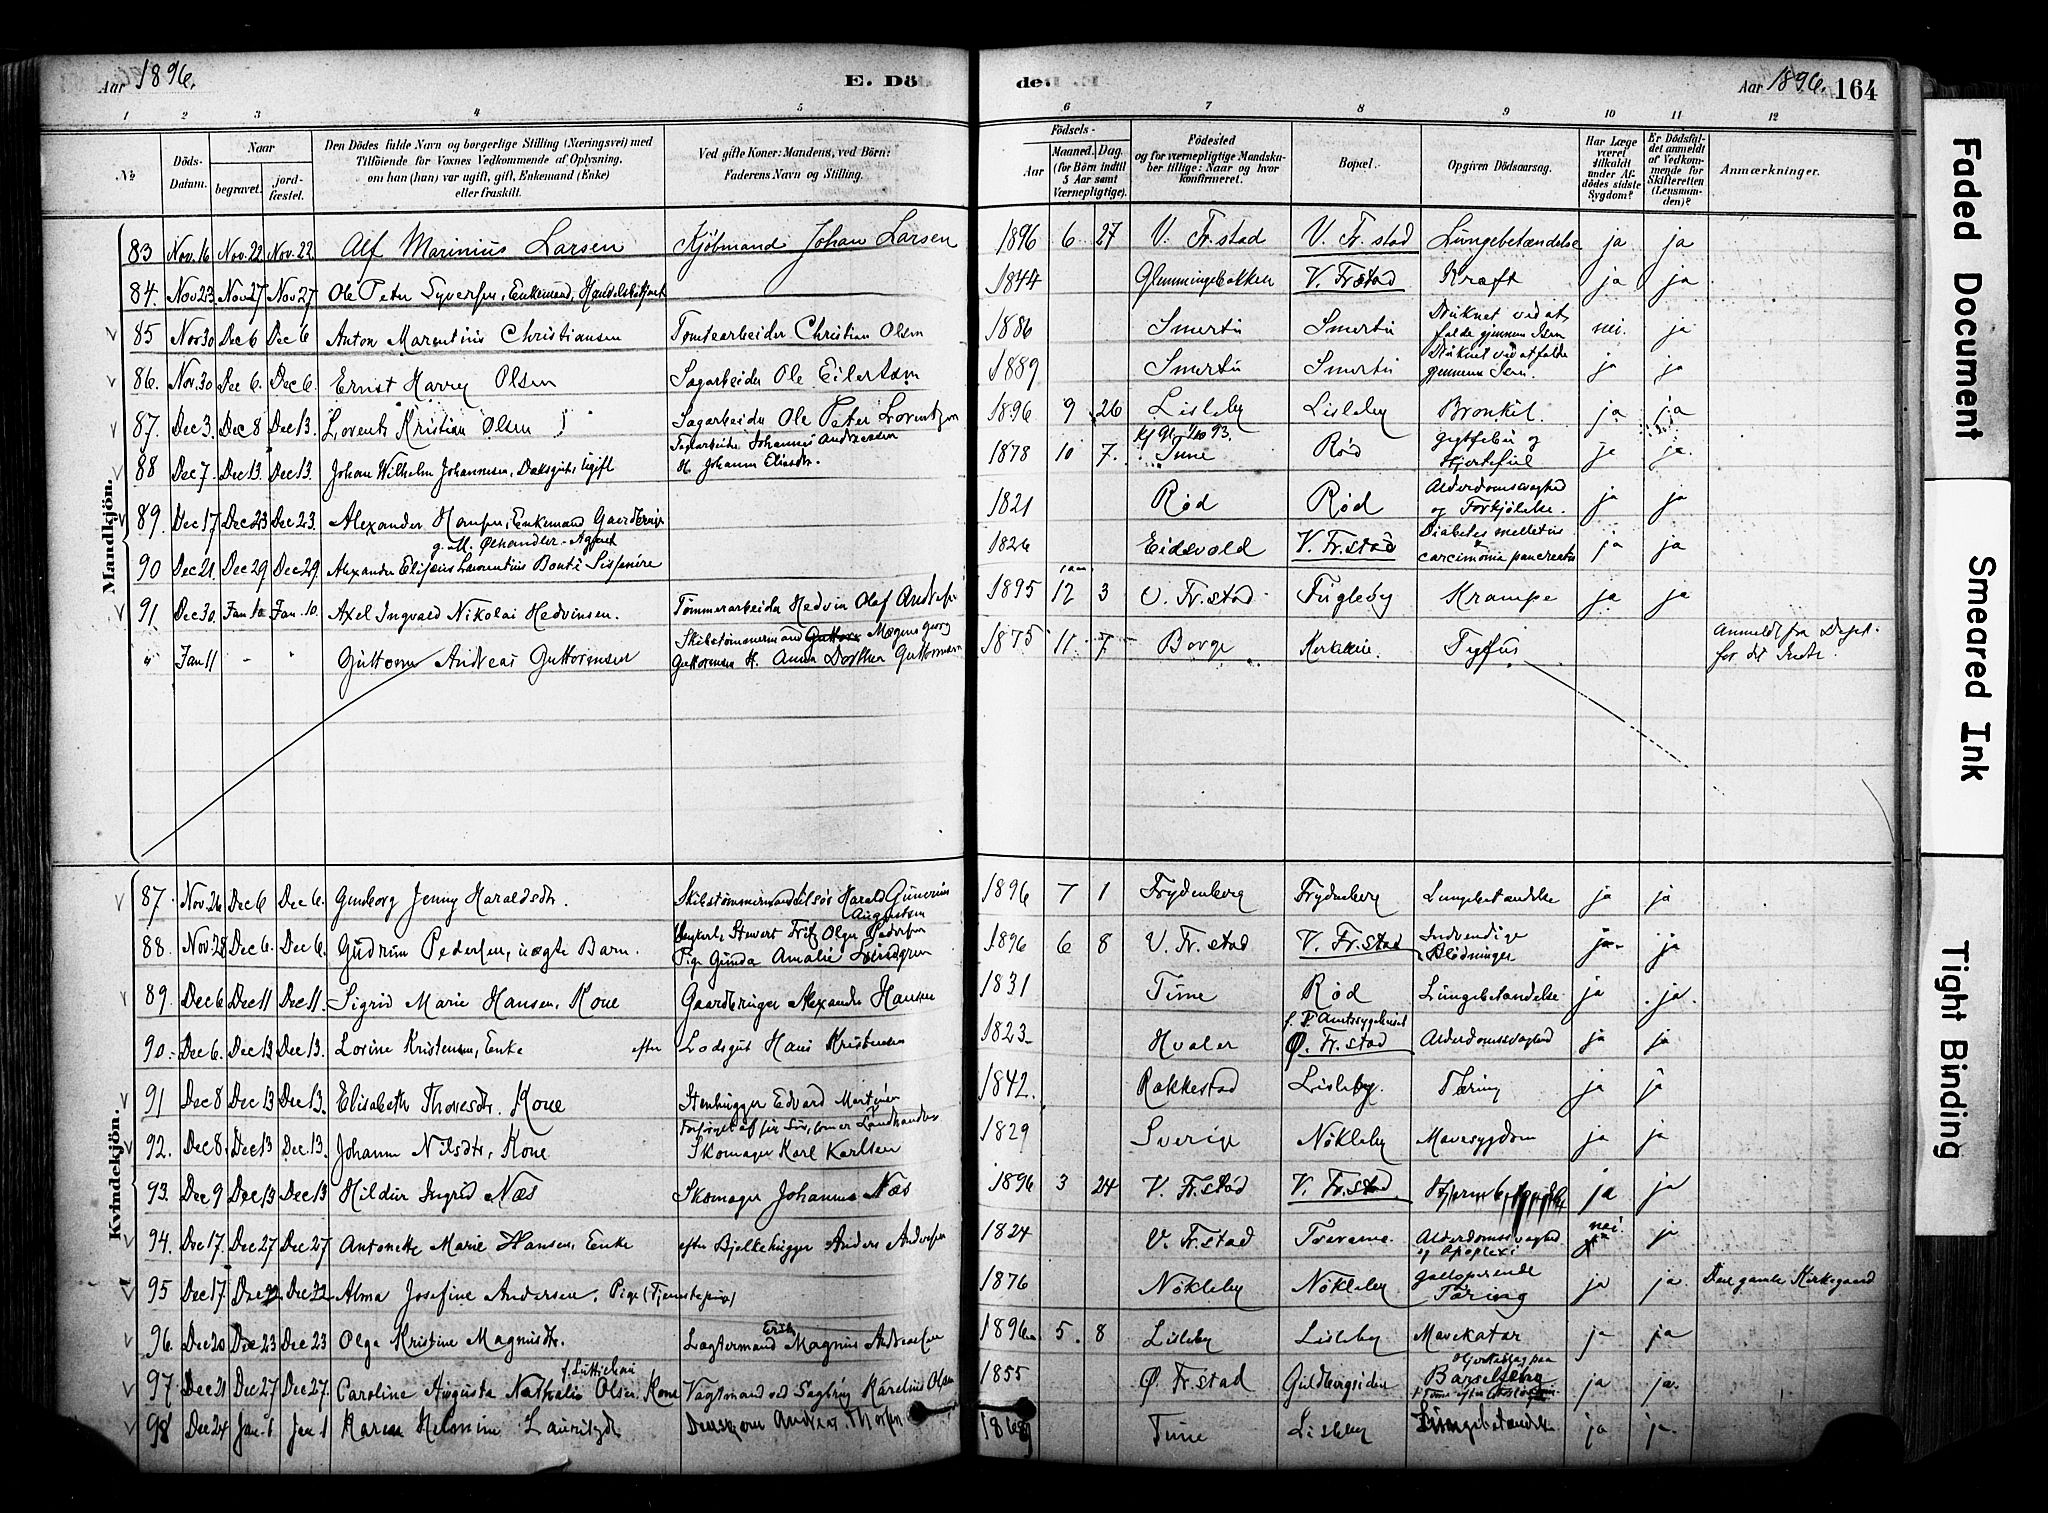 Aar 1896. E. Dö de. Aar 1896. 164
1 2 3 4 5 6 7 8 9 10 11 12
No
Döds-Datum.
Naar
begravet.
jordfæstet.
Den Dödes fulde Navn og borgerlige Stilling (Næringsvei) med
Tilföiende for Voxnes Vedkommende af Oplysning,
om han (hun) var ugift, gift, Enkemand (Enke)
eller fraskilt.
Ved gifte Koner: Mandens, ved Börn:
Faderens Navn og Stilling.
Födsels-
Aar
Maaned. Dag.
(for Börn indtil
5 Aar samt
Værnepligtige).
Födested
og for værnepligtige Mandska-
ber tillige: Naar og hvor
konfirmeret.
Bopæl.
Opgiven Dödsaarsag.
Har Læge
været
tilkaldt
under Af-
dödes sidste
Sygdom?
Er Dödsfal-
det anmeldt
af Vedkom-
mende for
Skifteretten
(Lensman-
den)?
Anmærkninger.
Mandkjön.
83 Nov. 16 Nov. 22 Nov. 22 Alf Marinius Larsen Kjöbmand Johan Larsen 1896 6 27 V. Fr. stad V. Fr. stad Lungebetændelse ja ja
84. Nov 23 Nov 27 Nov 27 Ole Peter Syversen, Enkemand, 1844 Glemmingebakken V. Frstad Kræft ja ja
85 Nov 30 Dec 6 Dec 6 Anton Marentius Christiansen Tomtearbeider Christian Olsen 1886 Smertu Smertu Druknet ved at falde gjennem Isen nei. ja
86. Nov. 30 Dec 6. Dec 6. Ernst Harry Olsen Sagarbeider Ole Eilertsen 1889 Smertu Smertu Druknet ved at falde gjennem Isen. ja ja
87. Dec 3. Dec 8 Dec 13. Lorentz Kristian Olsen Sagarbeider Ole Peter Lorentzen 1896 9 26 Lisleby Lisleby Bronkit. ja ja
88 Dec 7. Dec. 13. Dec. 13. Johan Wilhelm Johannesen, ugift Johannes Andreassen H. Johanne Eliasdtr. 1878 10 7. Tune Rød Gigtfeber og Hjertefeil ja ja.
89. Dec 17 Dec 23 Dec 23. Alexander Hansen, Enkemand Gaardbruger 1821 Rød Rød Alderdomssvaghed og Forkjölelse. ja ja
90 Dec 21. Dec 29 Dec 29. g. M. Ølhandler-Agent Alexander Elisæus Laurentius Bonti 1826 Eidsvold V. Fr. stad Diabetes mellitus carcinoma pancreatis ja ja
91. Dec 30. Jan 10 Jan. 10. Axel Ingvald Nikolai Hedvinsen. Tömmerarbeider Hedvin Olaf 1895 12 3 V. Fr. stad Fugleby Krampe ja ja
" Jan 11 " " Guttorm Andreas Guttormsen Skibstömmermand Magnus Georg Guttormsen H. Anna Dorthea Guttormsen 1875 11 7 Borge Tyfus Anmeldt fra Dept. for det Indre.
Kvindekjön.
87. Nov. 26 Dec 6 Dec 6. Gunborg Jenny Haraldsdtr. Skibstömmermand Harald Gunerius Augustsen 1896 7 1 Frydenberg Frydenberg Lungebetændelse ja ja
88. Nov. 28 Dec 6. Dec 6. Gudrun Pedersen, uægte Barn. Fritz Olger Pedersen Pige Gunda Amalie 1896 6 8 V. Fr. stad V. Fr. stad Indvendige Blödninger ja ja
89. Dec 6 Dec 11 Dec 11. Sigrid Marie Hansen, Kone Gaardbruger Alexander Hansen 1831 Tune Rød Lungebetændelse ja ja.
90. Dec 6. Dec 13 Dec 13. Lovine Kristensen, Enke efter Lodsgut Hans Kristensen 1823. Hvaler Amtssygehuset Ø. Fr. stad Alderdomssvaghed ja ja
91 Dec 8 Dec 13 Dec 13. Elisabeth Thoresdtr. Kone Stenhugger Edvard Martinsen 1842. Rakkestad Lisleby. Tæring ja ja
92. Dec 8. Dec 13 Dec. 13. Johanne Nilsdtr, Kone Skomager Karl Karlsen 1829 Sverige Nökleby Mavesygdom ja ja
93. Dec 9 Dec 13 Dec 13 Hildur Ingrid Næs Skomager Johannes Næs 1896 3 24 V. Fr. stad V. Fr. stad ja ja
94. Dec 17. Dec 27 Dec 27 Antonette Marie Hansen, Enke efter Bjelkehugger Anders Andersen 1824 V. Fr. stad Alderdomssvaghed og Apoplexi nei. ja
95 Dec 17 Dec 22 Dec 22 Alma Josefine Andersen. Pige (Tjenstepige) 1876 Nökleby Nökleby Galloperende Tæring ja ja. Den gamle Kirkegaard
96. Dec 20 Dec 23 Dec 23 Olga Kristine Magnusdtr. Magnus Andreasen 1896 5. 8 Lisleby Lisleby Mavekatar ja ja
97. Dec 21 Dec 27 Dec 27. Caroline Augusta Nathalie Olsen. Kone Vagtmand ved Sagbrug Karelius Olsen 1855 Ø. Fr. stad Guldbergsiden Barselfeber ja ja.
98 Dec 24 Jan 1 Jan 1 Karen Helmine Lauritzdtr 1868 Tune Lisleby Lungebetændelse ja ja.
Faded Document
Smeared Ink
Tight Binding